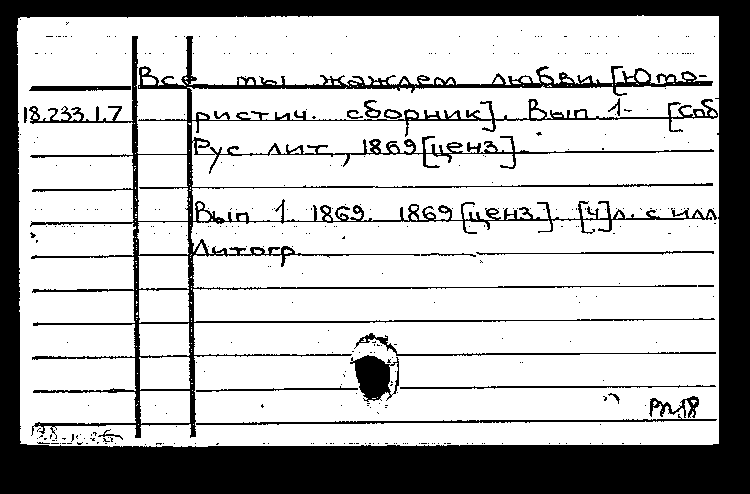 Все мы жаждем любви. [Юмо-
18.233.1.7 ристич. сборник]. Вып. 1- [Спб
Рус. лит., 1869 [ценз.].
Вып 1. 1869. 1869 [ценз.]. [4] л. с илл
Литогр.
РЛ18